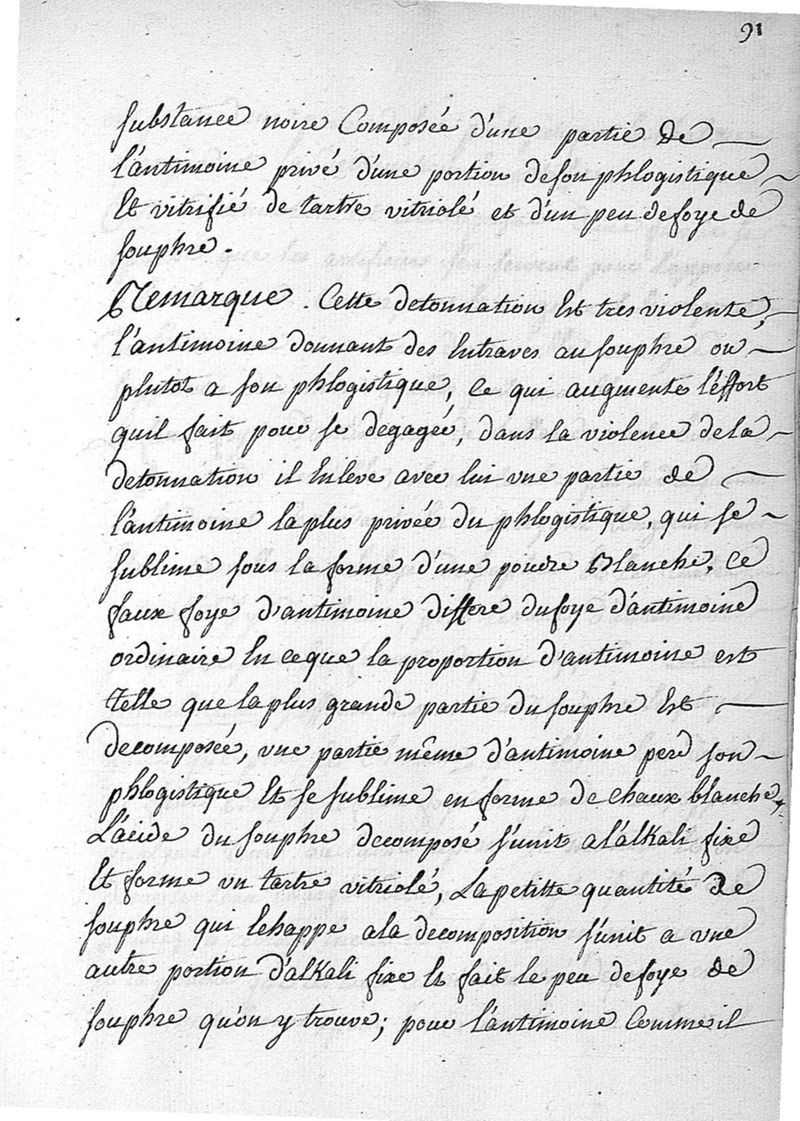 91
substance noire Composée d'une partie de
l'antimoine privé d'une portion de son phlogistique
Et vitrifié de tartre vitriolé et d'un peu de foye de
souphre.
Remarque. Cette detonnation Est tres violente,
l'antimoine donnant des Entraves au souphre ou
plutot a son phlogistique, Ce qui augmente l'effort
quil fait pour se degagé, dans la violence de la
detonnation il Enleve avec lui une partie de
l'antimoine la plus privée du phlogistique, qui se
sublime sous la forme d'une poudre Blanche, Ce
faux foye d'antimoine differe du foye d'antimoine
ordinaire En ce que la proportion d'antimoine est
telle que la plus grande partie du souphre Est
decomposée, une partie même d'antimoine perd son
phlogistique Et se sublime en forme de chaux blanche,
L'acide du souphre decomposé s'unit a l'alkali fixe
Et forme un tartre vitriolé, La petitte quantité de
souphre qui Echappe a la decomposition s'unit a une
autre portion d'alkali fixe Et fait le peu de foye de
souphre qu'on y trouve; pour l'antimoine Comme il